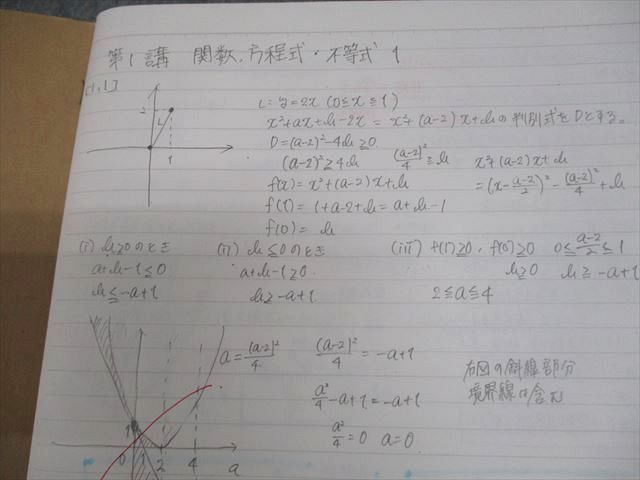 第1講 関数、方程式・不等式 1
[1.1]
2
L
1
L: y=2x (0≦x≦1)
x²+ax+b-2x = x²+(a-2)x+bの判別式をDとする。
D=(a-2)²-4b≧0
(a-2)²≧4b (a-2)²/4≧b x²+(a-2)x+b
f(x)=x²+(a-2)x+b =(x-(a-2)/2)²-(a-2)²/4+b
f(1)=1+a-2+b=a+b-1
f(0)=b
(i) b≧0のとき
a+b-1≦0
b≦-a+1
(ii) b≦0のとき
a+b-1≧0
b≧-a+1
(iii) f(1)≧0, f(0)≧0 0≦(a-2)/2≦1
b≧0 b≧-a+1
2≦a≦4
a=(a-2)²/4 (a-2)²/4=-a+1
a²/4-a+1=-a+1
a²/4=0 a=0
右図の斜線部分
境界線は含む
1
0 1 2 4 a